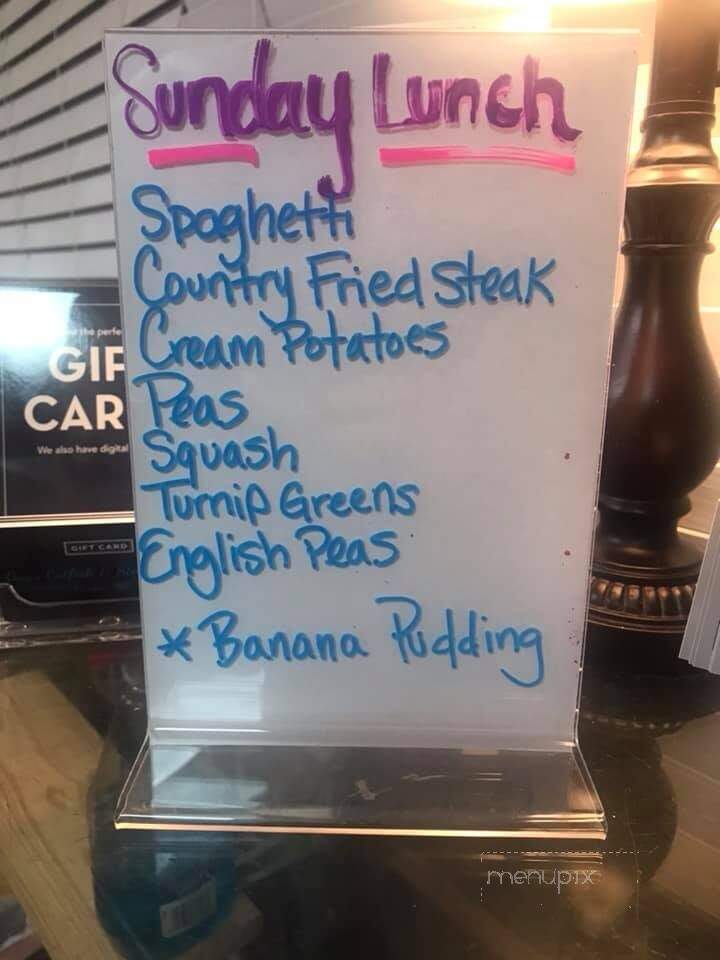 Sunday Lunch
Spaghetti
Country Fried Steak
Cream Potatoes
Peas
Squash
Turnip Greens
English Peas
* Banana Pudding
the perfe
GIF
CAR
We also have digital
GIFT CARD
menupix